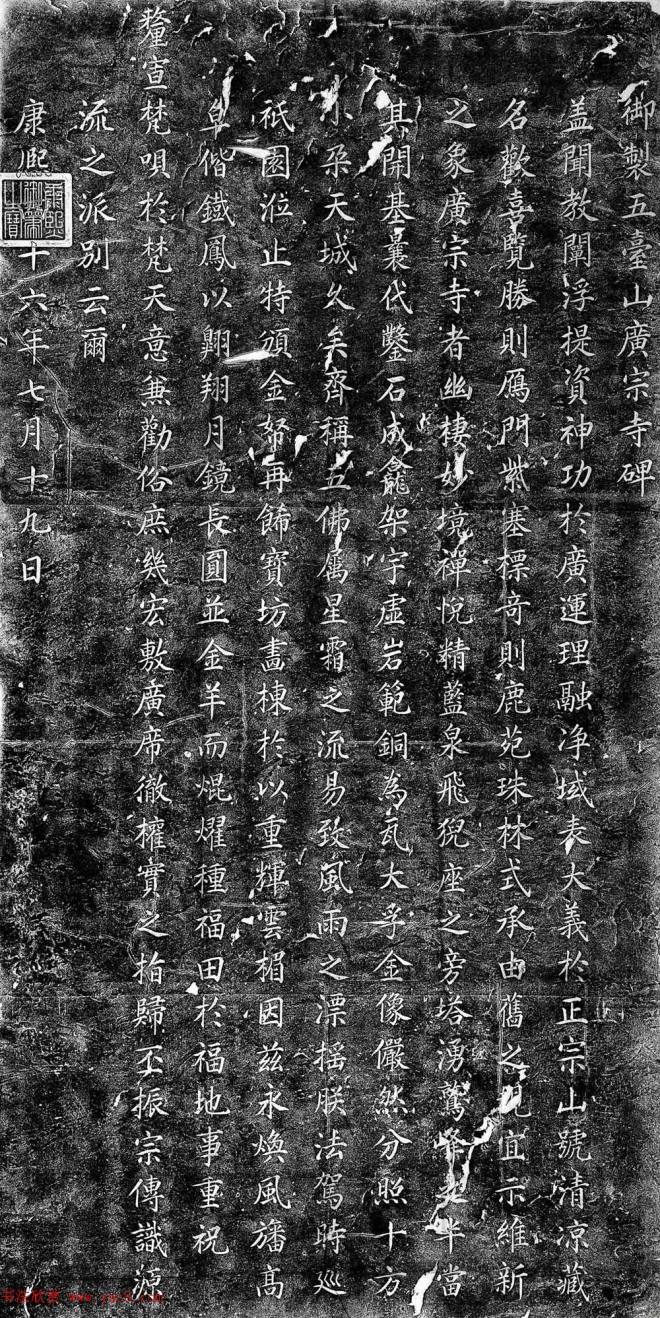 御製五臺山廣宗寺碑
盖聞教闡浮提資神功於廣運理融净域表大義於正宗山號清凉藏
名歡喜覽勝則鴈門紫塞標奇則鹿苑珠林式承由舊之䂓宜示維新
之象廣宗寺者幽棲妙境禪悅精藍泉飛猊座之旁塔湧鷲峰之半當
其開基曩代鑿石成龕架宇虛岩範銅為瓦大孚金像儼然分照十方
小朶天城久矣齊稱五佛属星霜之流易致風雨之漂摇朕法駕時廵
祇園涖止特頒金帑再餙寶坊畵棟於以重輝雲楣因兹永煥風旛髙
阜偕鐵鳳以翱翔月鏡長圓並金羊而焜燿種福田於福地事重祝
釐宣梵唄於梵天意兼勸俗庶幾宏敷廣席徹權實之指歸丕振宗傳識源
流之派別云爾
康熙 十六年七月十九日
www.yac8.com